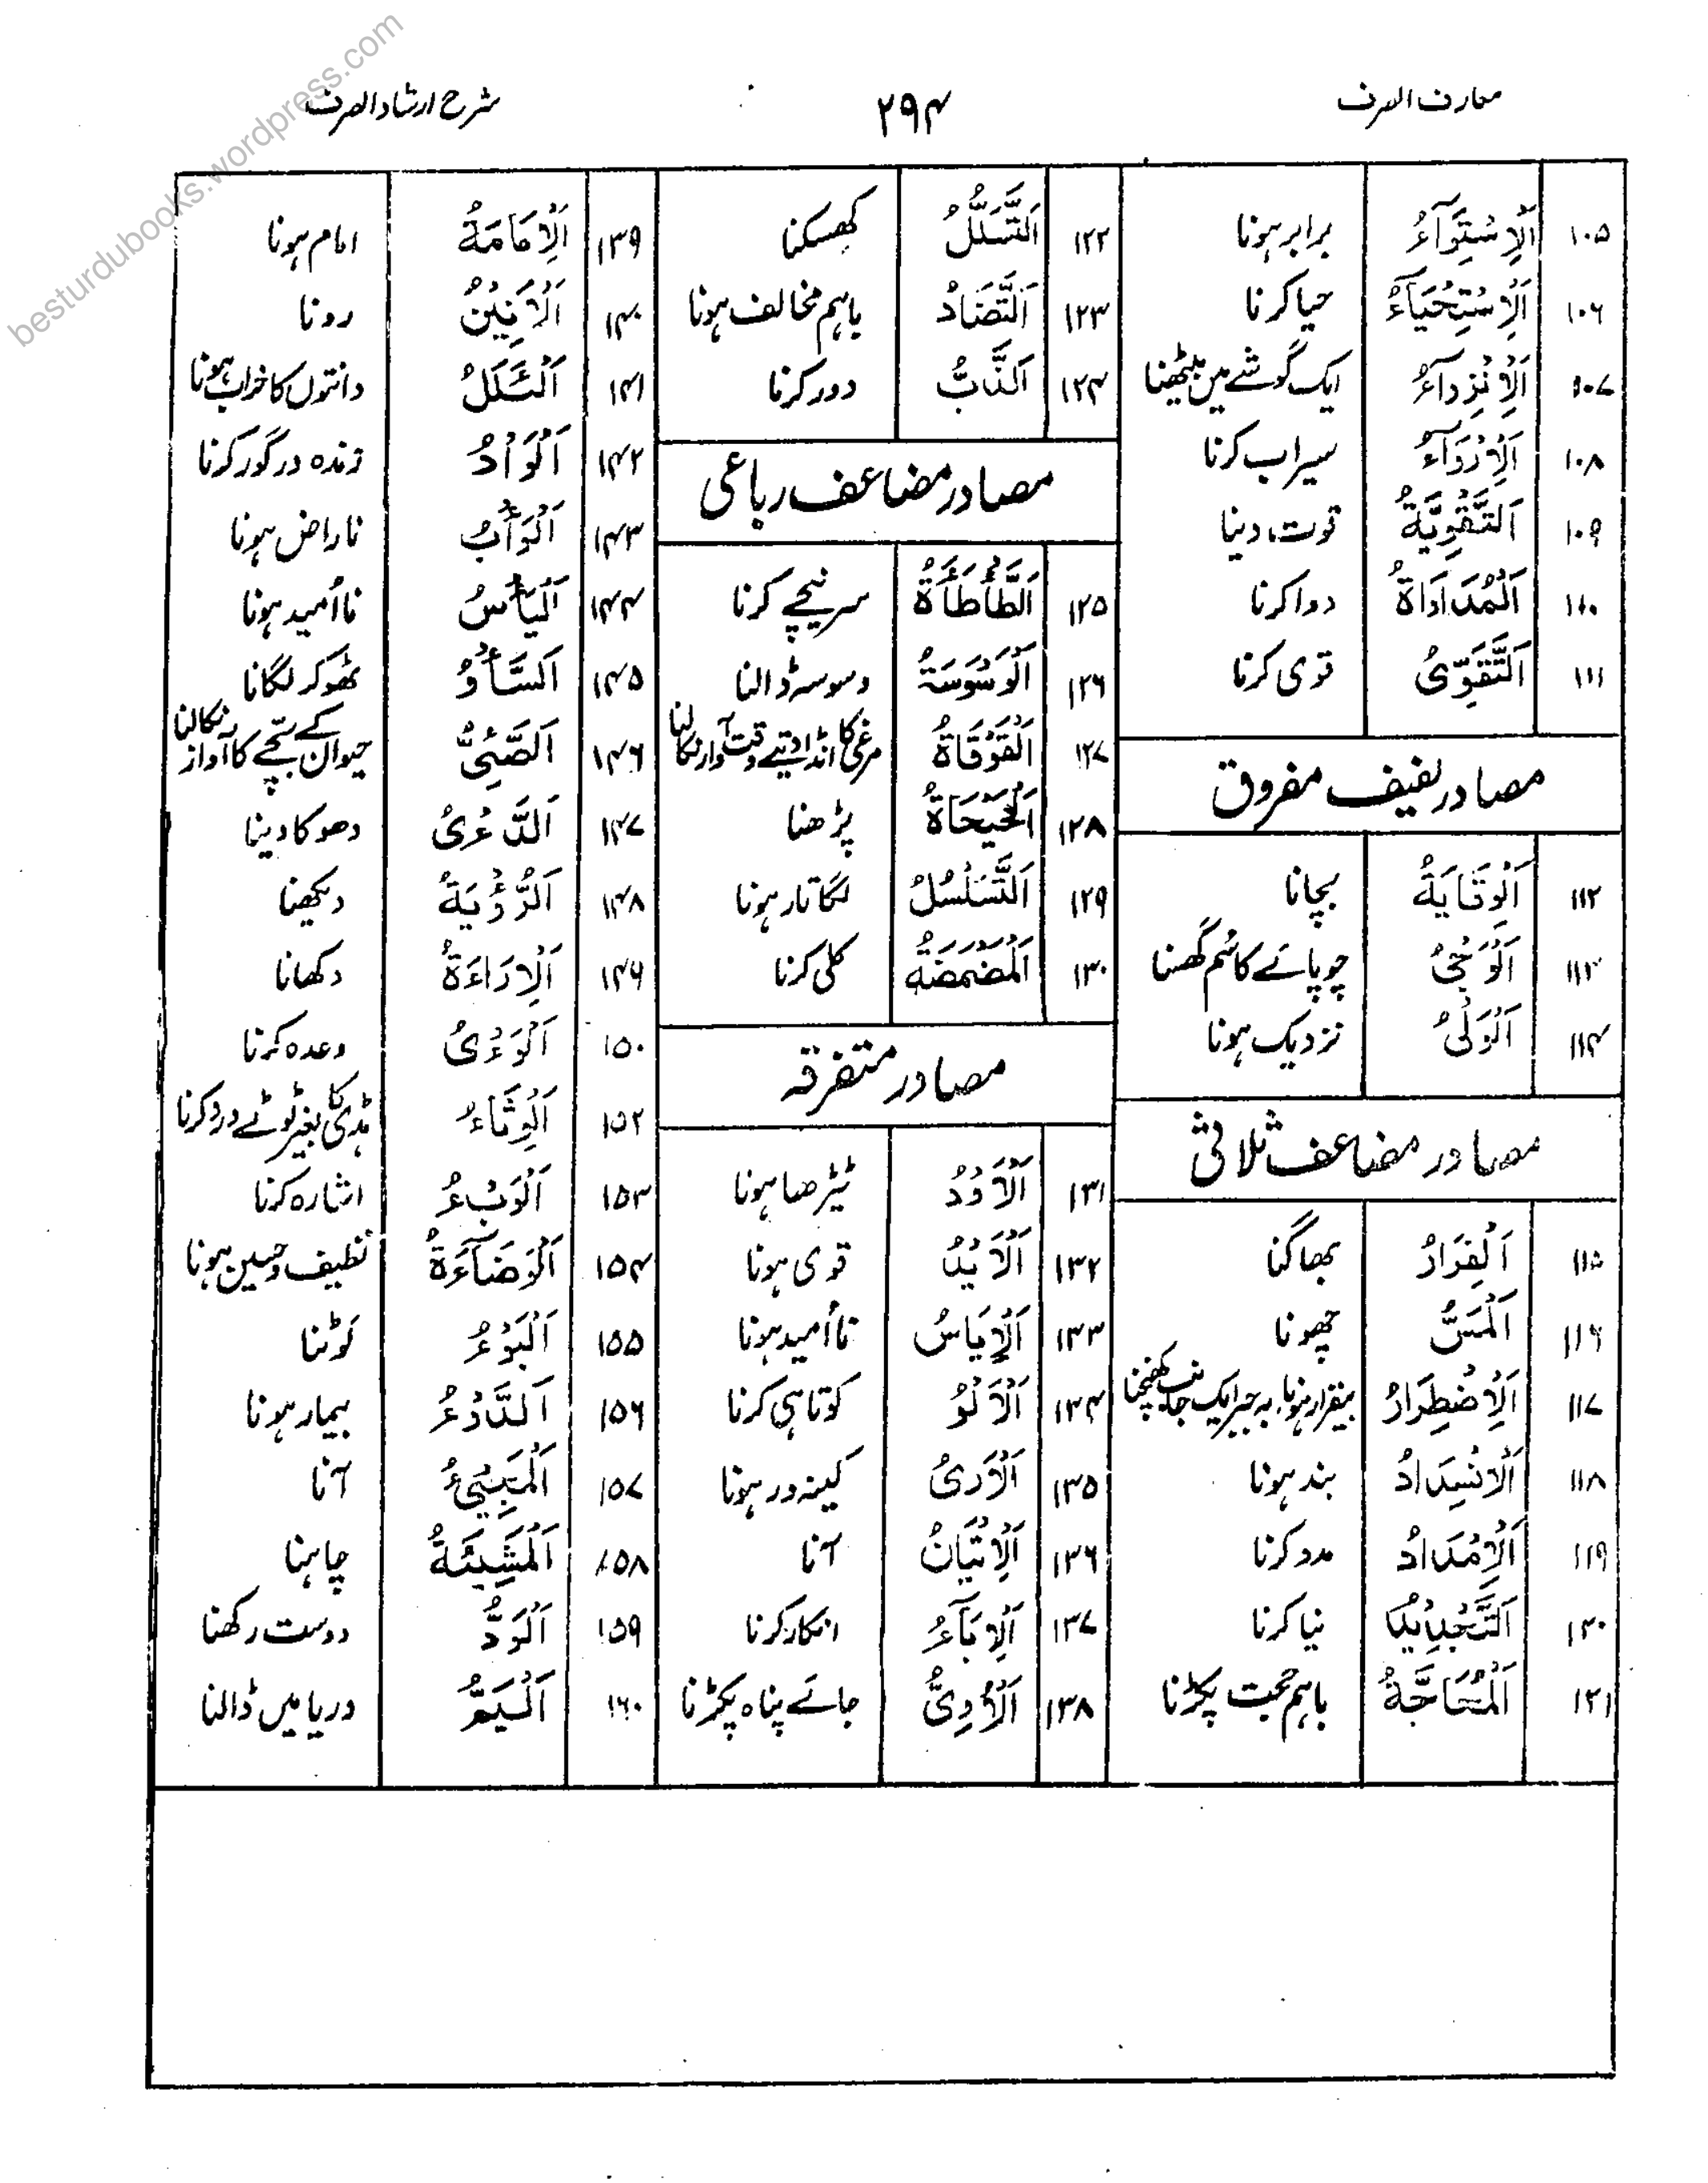 معارف الصرف
۲۹۴
شرح ارشاد الصرف
۱۰۵ اَلْاِسْتِوَآءُ برابر ہونا
۱۰۶ اَلْاِسْتِحْيَآءُ حیا کرنا
۱۰۷ اَلْاِنْزِوَآءُ ایک گوشے میں بیٹھنا
۱۰۸ اَلْاِرْوَآءُ سیراب کرنا
۱۰۹ اَلتَّقْوِيَّةُ قوت دینا
۱۱۰ اَلْمُدَاوَاةُ دوا کرنا
۱۱۱ اَلتَّقَوِّىُ قوی کرنا
مصادر لفیف مفروق
۱۱۲ اَلْوِقَايَةُ بچانا
۱۱۳ اَلْوَجْىُ چوپائے کا سُم گھسنا
۱۱۴ اَلْوَلْىُ نزدیک ہونا
مصادر مضاعف ثلاثی
۱۱۵ اَلْفِرَارُ بھاگنا
۱۱۶ اَلْمَسُّ چھونا
۱۱۷ اَلْاِضْطِرَارُ بیقرار ہونا، بہ جبر ایک جانب کھینچنا
۱۱۸ اَلْاِنْسِدَادُ بند ہونا
۱۱۹ اَلْاِمْدَادُ مدد کرنا
۱۲۰ اَلتَّجْدِيْدُ نیا کرنا
۱۲۱ اَلْمُحَاجَّةُ باہم حجت پکڑنا
۱۲۲ اَلتَّسَلُّلُ کھسکنا
۱۲۳ اَلتَّضَادُّ باہم مخالف ہونا
۱۲۴ اَلذَّبُّ دور کرنا
مصادر مضاعف رباعی
۱۲۵ اَلطَّأْطَأَةُ سر نیچے کرنا
۱۲۶ اَلْوَسْوَسَةُ وسوسہ ڈالنا
۱۲۷ اَلْقَوْقَاةُ مرغی کا انڈا دیتے وقت آواز نکالنا
۱۲۸ اَلْحَيْحَاةُ پڑھنا
۱۲۹ اَلتَّسَلْسُلُ لگاتار ہونا
۱۳۰ اَلْمَضْمَضَةُ کلی کرنا
مصادر متفرقہ
۱۳۱ اَلْاَوَدُ ٹیڑھا ہونا
۱۳۲ اَلْاَيْدُ قوی ہونا
۱۳۳ اَلْاِيَاسُ نا اُمید ہونا
۱۳۴ اَلْاَلْوُ کوتاہی کرنا
۱۳۵ اَلْاَرْىُ کینہ ور ہونا
۱۳۶ اَلْاِتْيَانُ آنا
۱۳۷ اَلْاِبَآءُ انکار کرنا
۱۳۸ اَلْاُوِىُّ جائے پناہ پکڑنا
۱۳۹ اَلْاِمَامَةُ امام ہونا
۱۴۰ اَلْاَنِيْنُ رونا
۱۴۱ اَلْيَلَلُ دانتوں کا خراب ہونا
۱۴۲ اَلْوَأْدُ زندہ درگور کرنا
۱۴۳ اَلْوَأْبُ ناراض ہونا
۱۴۴ اَلْيَأْسُ نا اُمید ہونا
۱۴۵ اَلسَّأْوُ ٹھوکر لگانا
۱۴۶ اَلصَّئِىُّ حیوان کے بچے کا آواز نکالنا
۱۴۷ اَلدَّءْىُ دھوکا دینا
۱۴۸ اَلرُّؤْيَةُ دیکھنا
۱۴۹ اَلْاِرَاءَةُ دکھانا
۱۵۰ اَلْوَءْىُ وعدہ کرنا
۱۵۲ اَلْوِثَاءُ ہڈی کا بغیر ٹوٹے درد کرنا
۱۵۳ اَلْوَبْءُ اشارہ کرنا
۱۵۴ اَلْوَضَآءَةُ نظیف و حسین ہونا
۱۵۵ اَلْبَوْءُ لَوٹنا
۱۵۶ اَلدَّوْءُ بیمار ہونا
۱۵۷ اَلْمَجِيْئُ آنا
۱۵۸ اَلْمَشِيْئَةُ چاہنا
۱۵۹ اَلْوَدُّ دوست رکھنا
۱۶۰ اَلْيَمُّ دریا میں ڈالنا
besturdubooks.wordpress.com